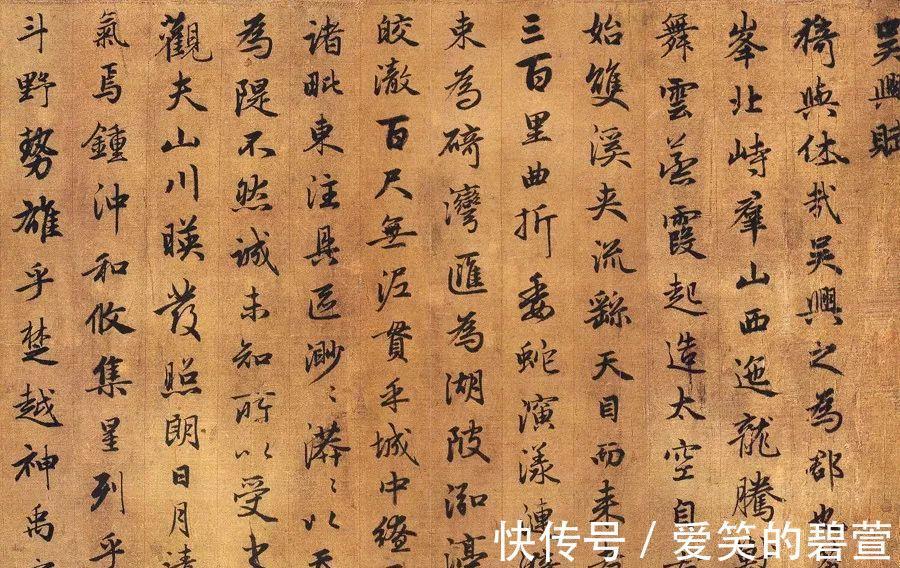 吳興賦
猗與休哉吳興之為郡也
峯北峙羣山西迤龍騰
舞雲蒸霞起造太空自
始雙溪夾流繇天目而来
三百里曲折委蛇演漾漣
束為碕灣匯為湖陂泓渟
皎澈百尺無泥貫乎城中繚
諸毗東注具區渺〻漭〻以天
為隄不然誠未知所以受之
觀夫山川暎發照朗日月清
氣焉鍾沖和攸集星列乎
斗野勢雄乎楚越神禹
快传号 / 爱笑的碧萱